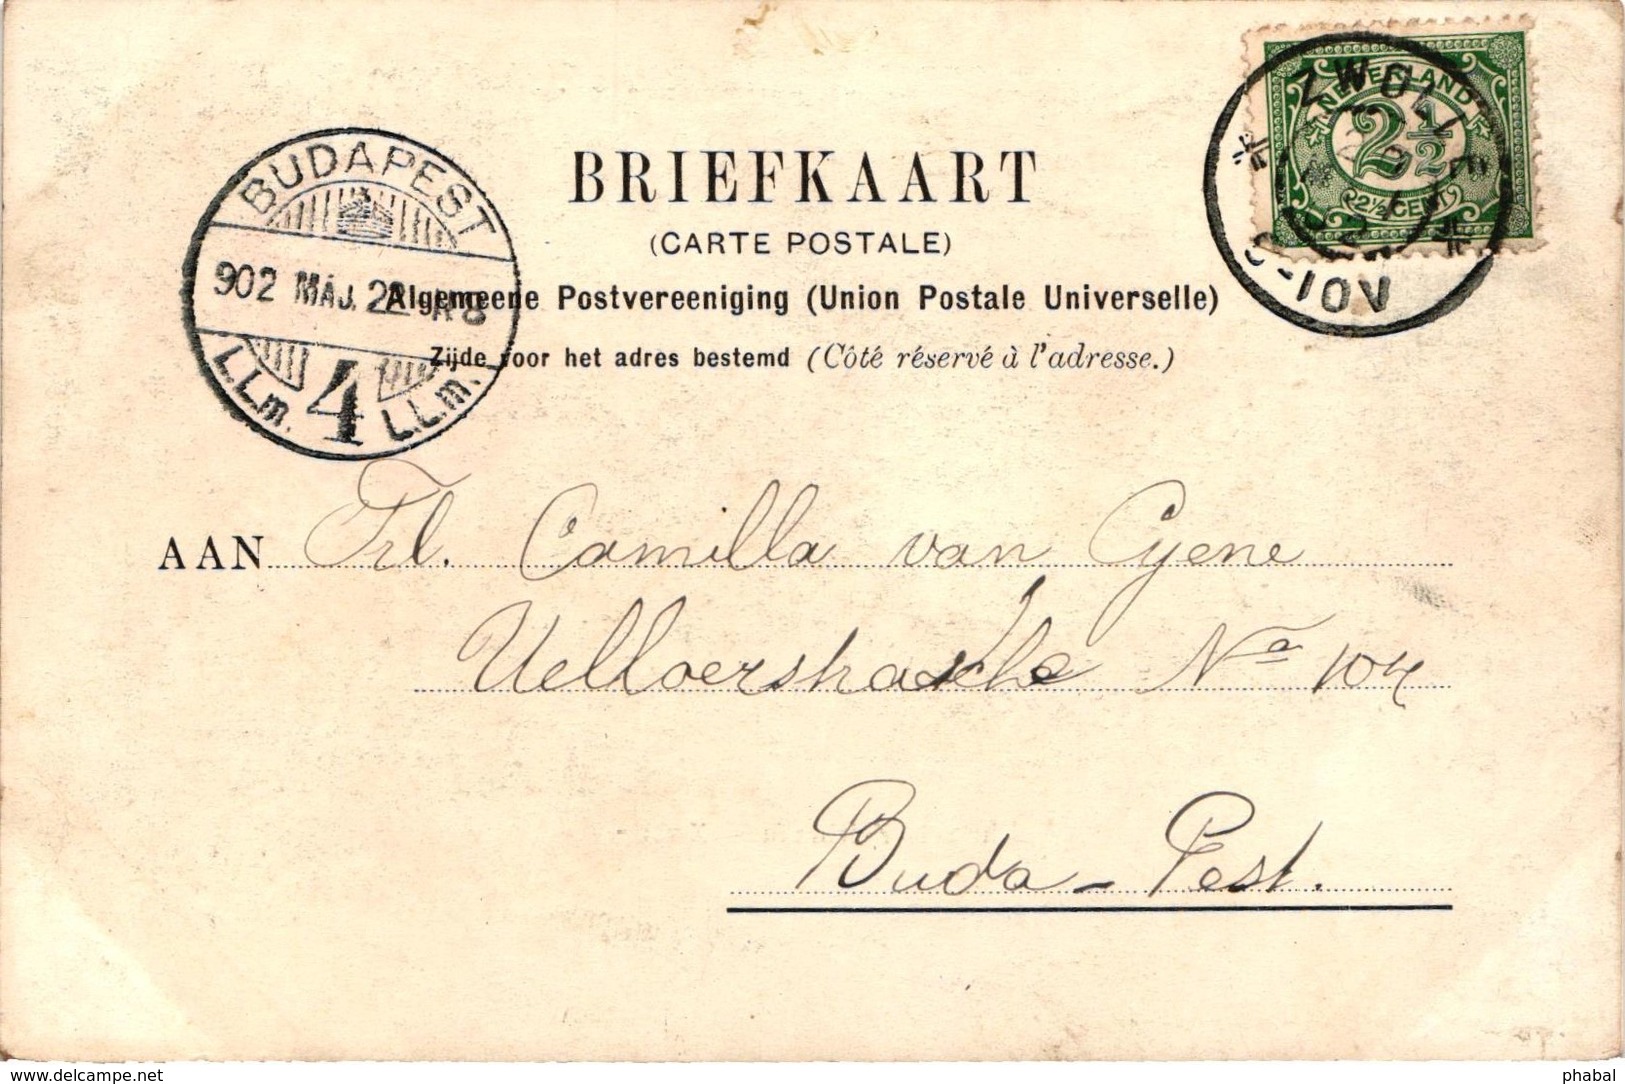 BRIEFKAART
(CARTE POSTALE)
Algemeene Postvereeniging (Union Postale Universelle)
Zijde voor het adres bestemd (Côté réservé à l'adresse.)
BUDAPEST
902 MÁJ. 22
L.L.m. 4 L.L.m.
NEDERLAND
2½
2½ CENT
ZWOLLE
AAN Frl. Camilla van Gyene
No 104
Buda-Pest.
www.delcampe.net
phabal